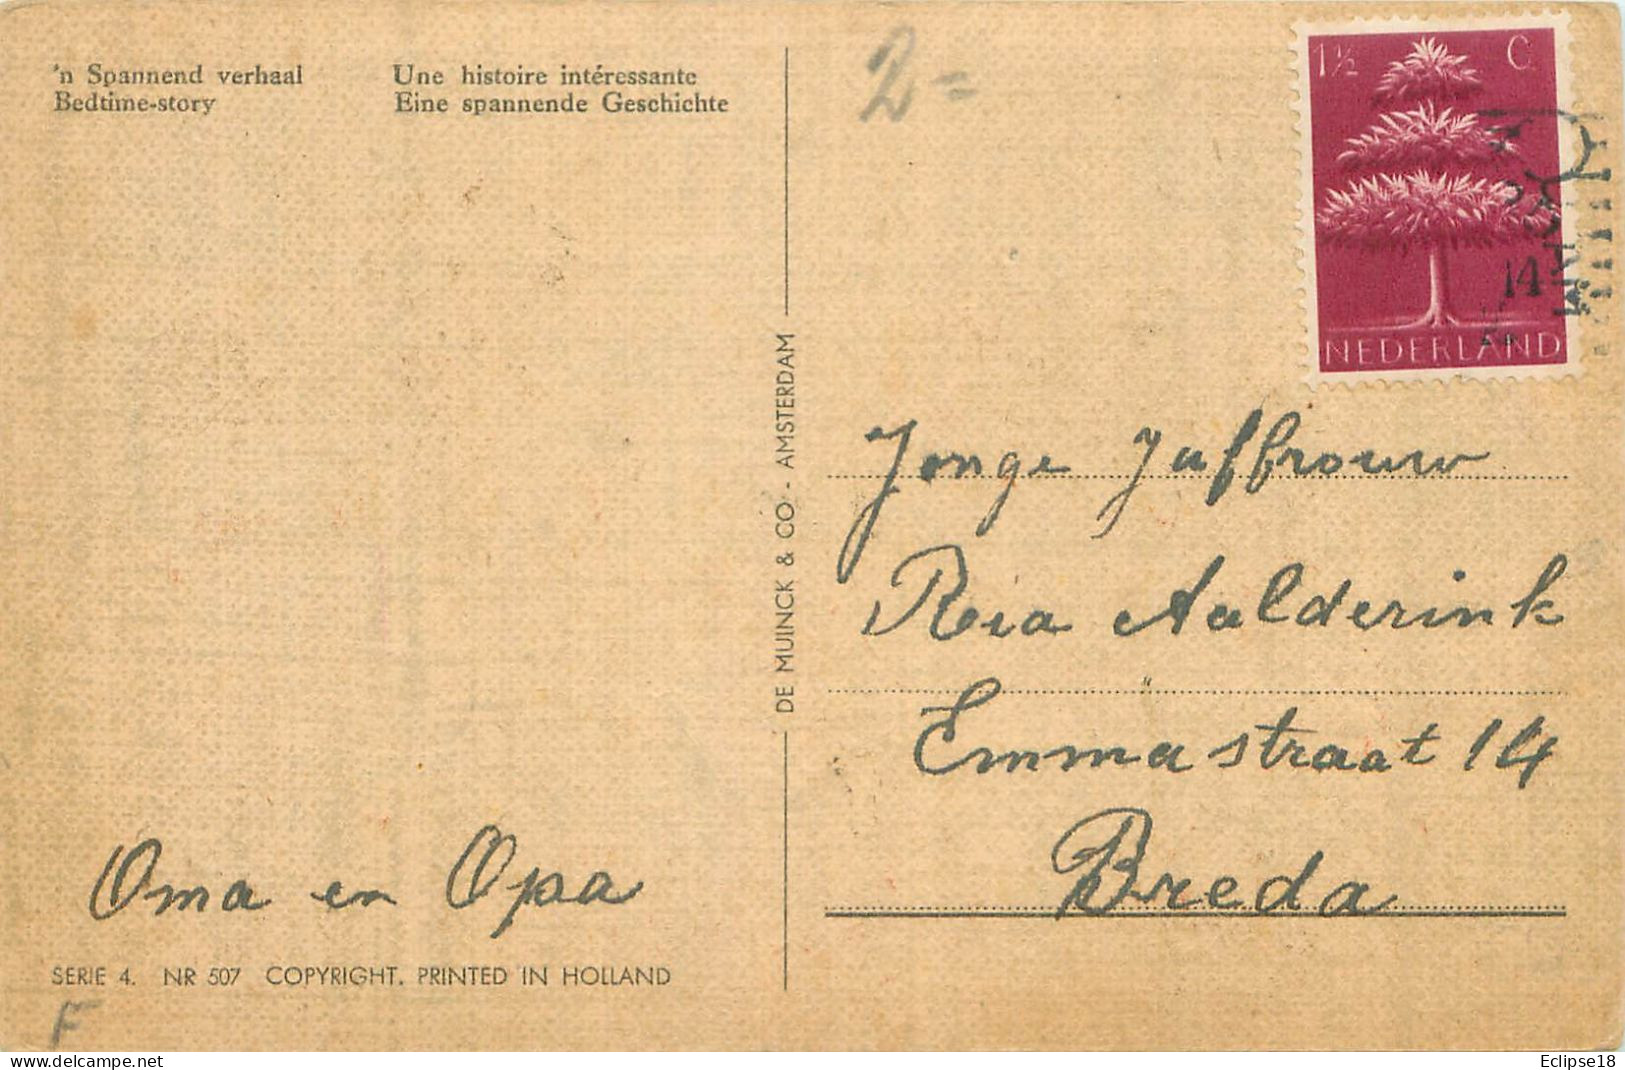 'n Spannend verhaal
Bedtime-story
Une histoire intéressante
Eine spannende Geschichte
2=
1½ C
14
NEDERLAND
DE MUINCK & CO - AMSTERDAM
Jonge Juffrouw
Ria Aalderink
Emmastraat 14
Breda
Oma en Opa
SERIE 4. NR 507 COPYRIGHT. PRINTED IN HOLLAND
F
www.delcampe.net
Eclipse18